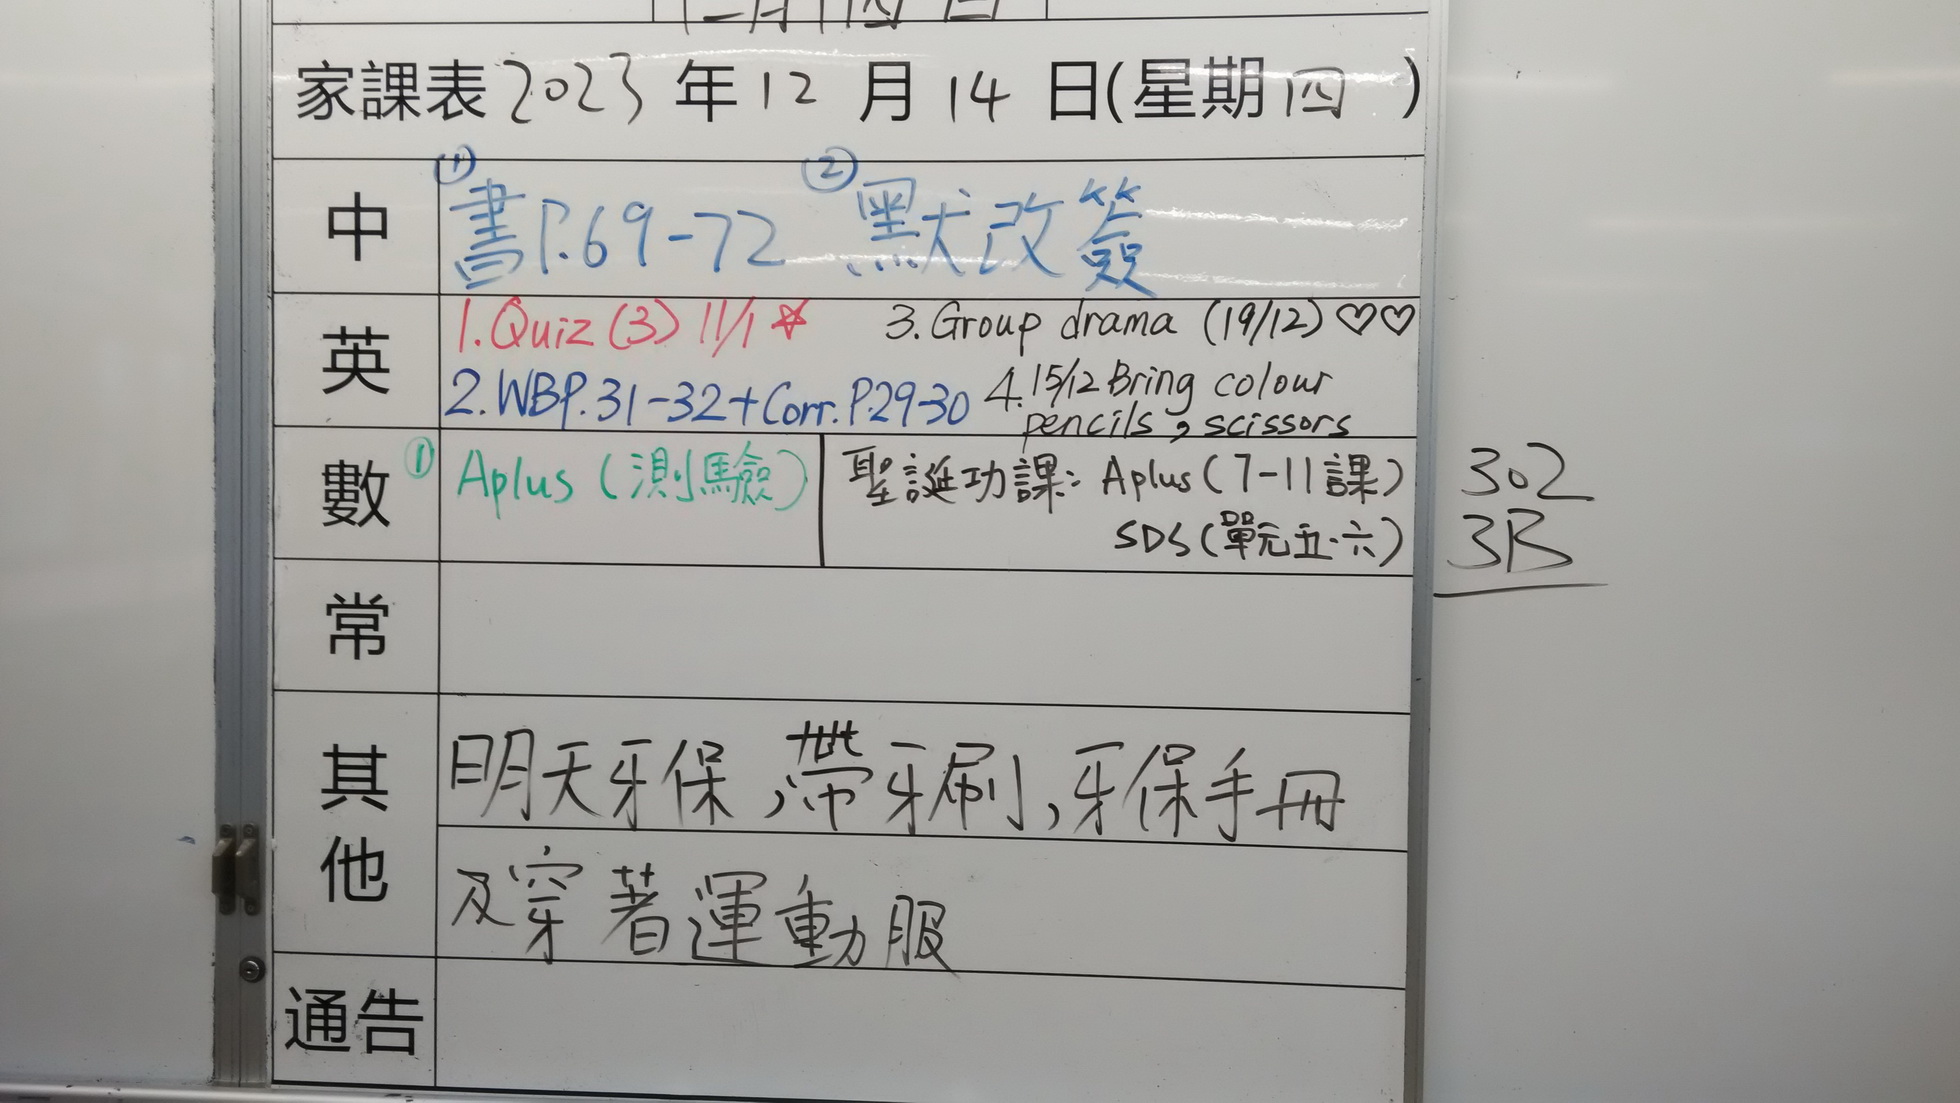 家課表 2023 年 12 月 14 日(星期四)
中 ① 書P.69-72 ② 默改簽
英 1.Quiz (3) 11/1 ☆ 3.Group drama (19/12) ♡♡
2.WBP.31-32+Corr.P.29-30 4.15/12 Bring colour
pencils, scissors
數 ① Aplus (測驗) 聖誕功課: Aplus (7-11課)
SDS (單元五.六)
302
3B
常
其他 明天牙保,帶牙刷,牙保手冊
及穿著運動服
通告